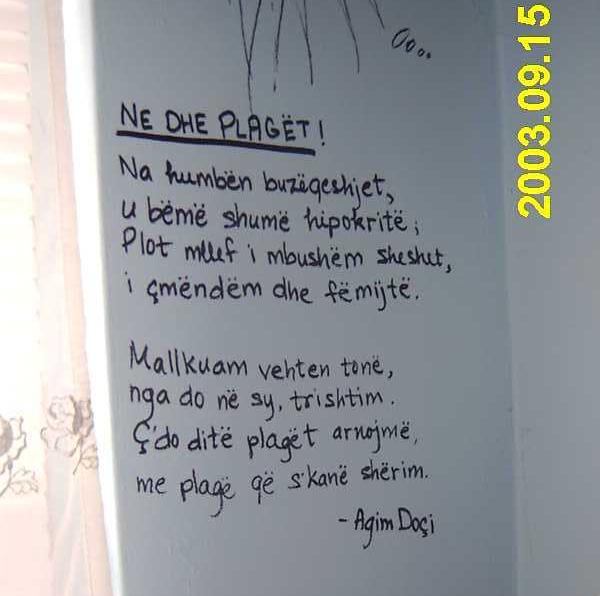 Ooo..
NE DHE PLAGËT!
Na humbën buzëqeshjet,
u bëmë shumë hipokritë;
Plot mllef i mbushëm sheshet,
i çmëndëm dhe fëmijtë.
Mallkuam vehten tonë,
nga do në sy, trishtim.
Ç'do ditë plagët arnojmë,
me plagë që s'kanë shërim.
- Agim Doçi
2003.09.15